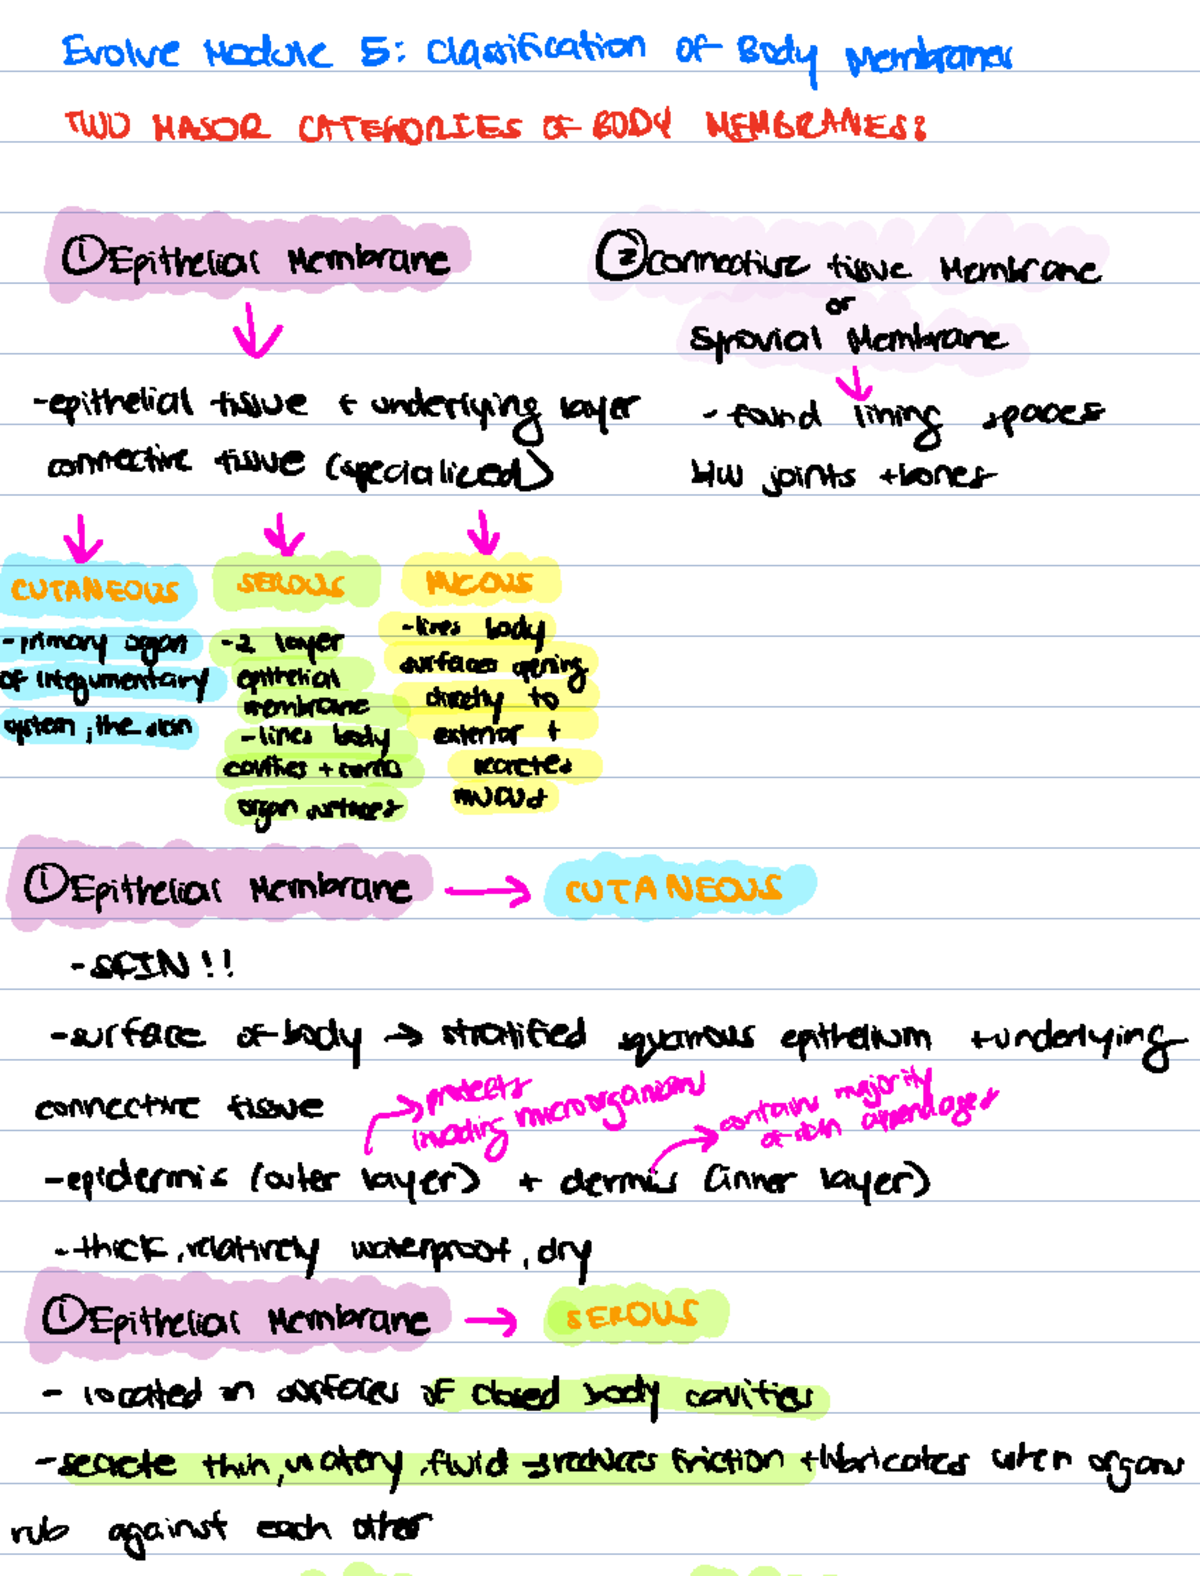 Evolve Module 5: Classification of Body Membranes
TWO MAJOR CATEGORIES OF BODY MEMBRANES:
① Epithelial Membrane
-epithelial tissue + underlying layer
connective tissue (specialized)
② Connective tissue Membrane
or
Synovial Membrane
- found lining spaces
b/w joints + bones
CUTANEOUS
-primary organ
of integumentary
system, the skin
SEROUS
-2 layer
epithelial
membrane
-lines body
cavities + covers
organ surfaces
MUCOUS
-lines body
surfaces opening
directly to
exterior +
secretes
mucus
① Epithelial Membrane → CUTANEOUS
-SKIN!!
-surface of body → stratified squamous epithelium + underlying
connective tissue
→ protects
invading microorganisms
→ contains majority
of skin appendages
-epidermis (outer layer) + dermis (inner layer)
-thick, relatively waterproof, dry
① Epithelial Membrane → SEROUS
- located on surfaces of closed body cavities
-secrete thin, watery fluid → reduces friction + lubricates when organs
rub against each other